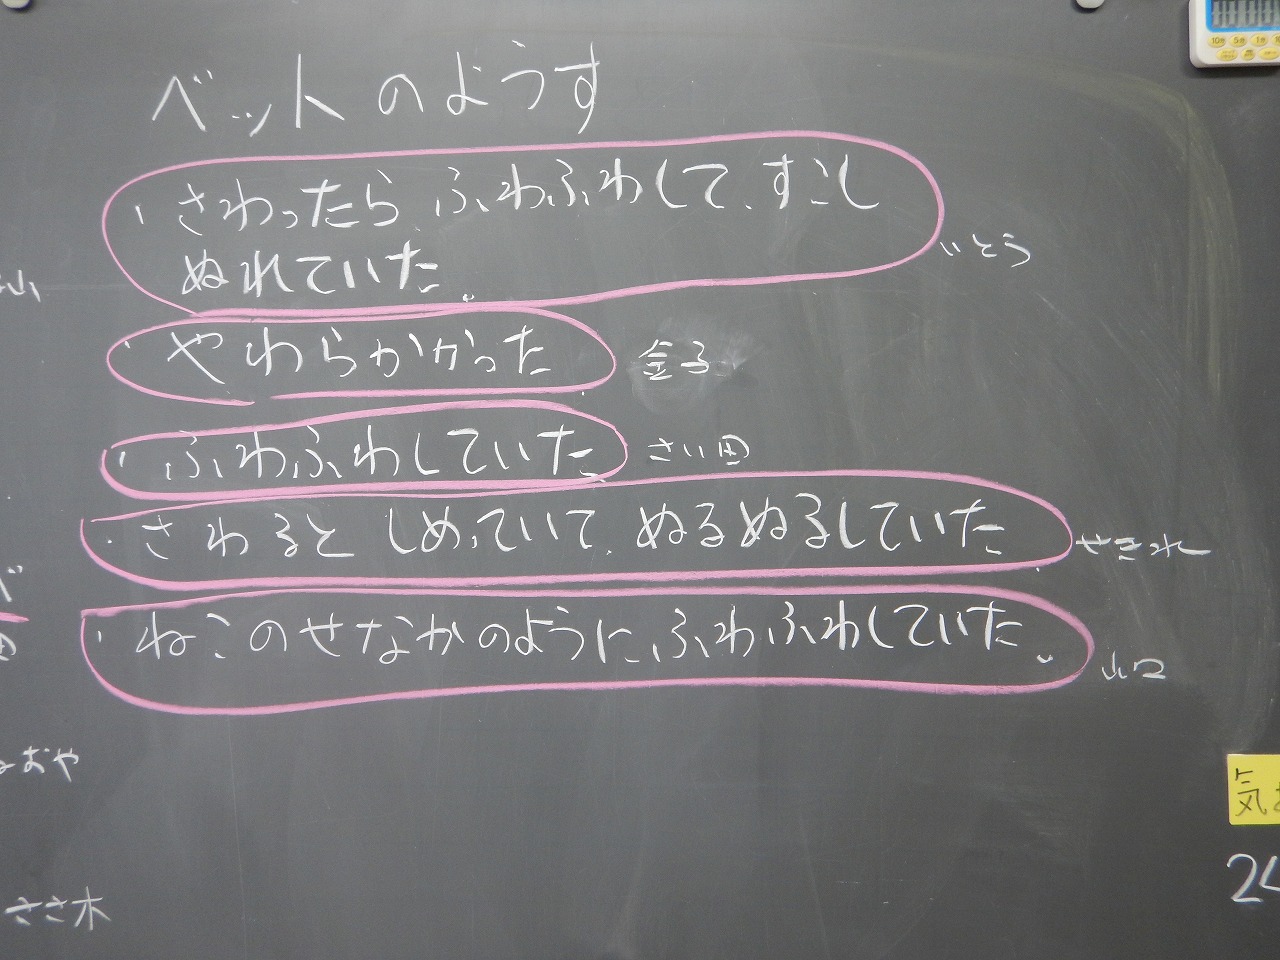 ベットのようす
・さわったら、ふわふわして、すこし
ぬれていた。
いとう
・やわらかかった
金子
・ふわふわしていた
さい田
・さわると しめっていて、ぬるぬるしていた
せき水
・ねこのせなかのように、ふわふわしていた。
山口
山
おや
ささ木
気
24
10分 5分 1分